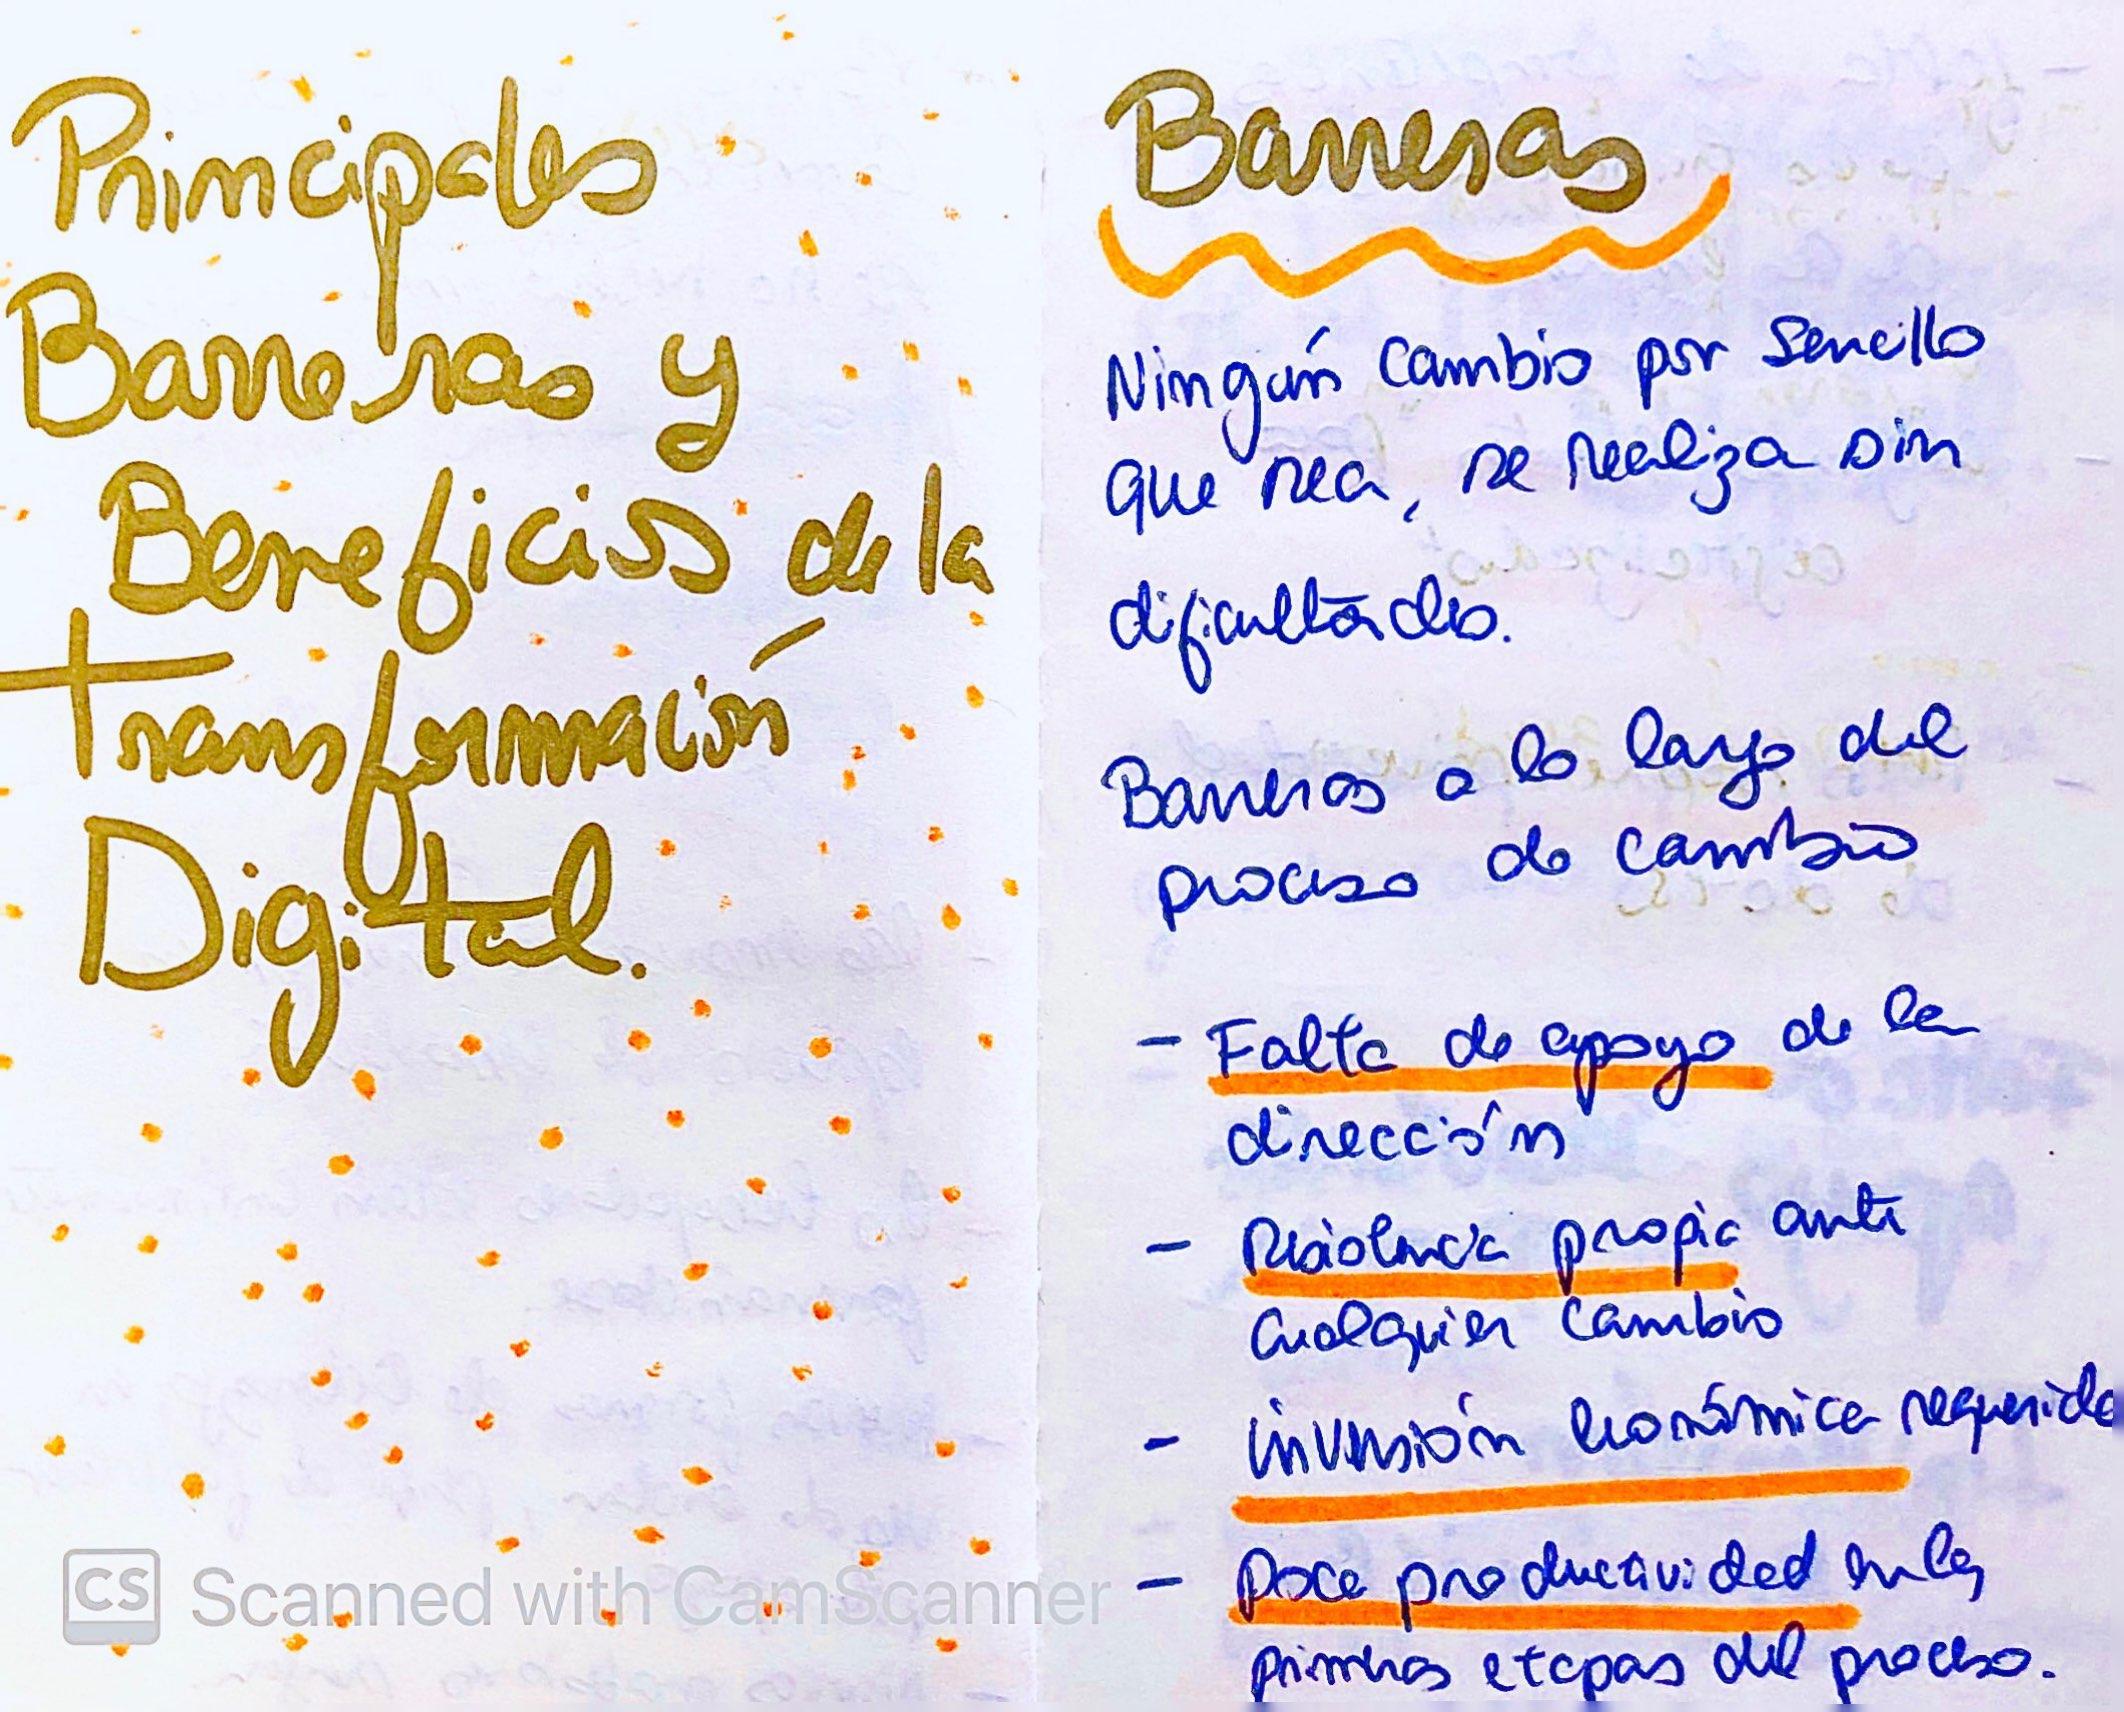 Principales
Barreras y
Beneficios de la
Transformación
Digital.
Barreras
Ningún cambio por sencillo
que sea, se realiza sin
dificultades.
Barreras a lo largo del
proceso de cambio
- Falta de apoyo de la
dirección
- Resistencia propia ante
cualquier cambio
- inversión económica requerida
- Poca productividad en las
primeras etapas del proceso.
CS Scanned with CamScanner